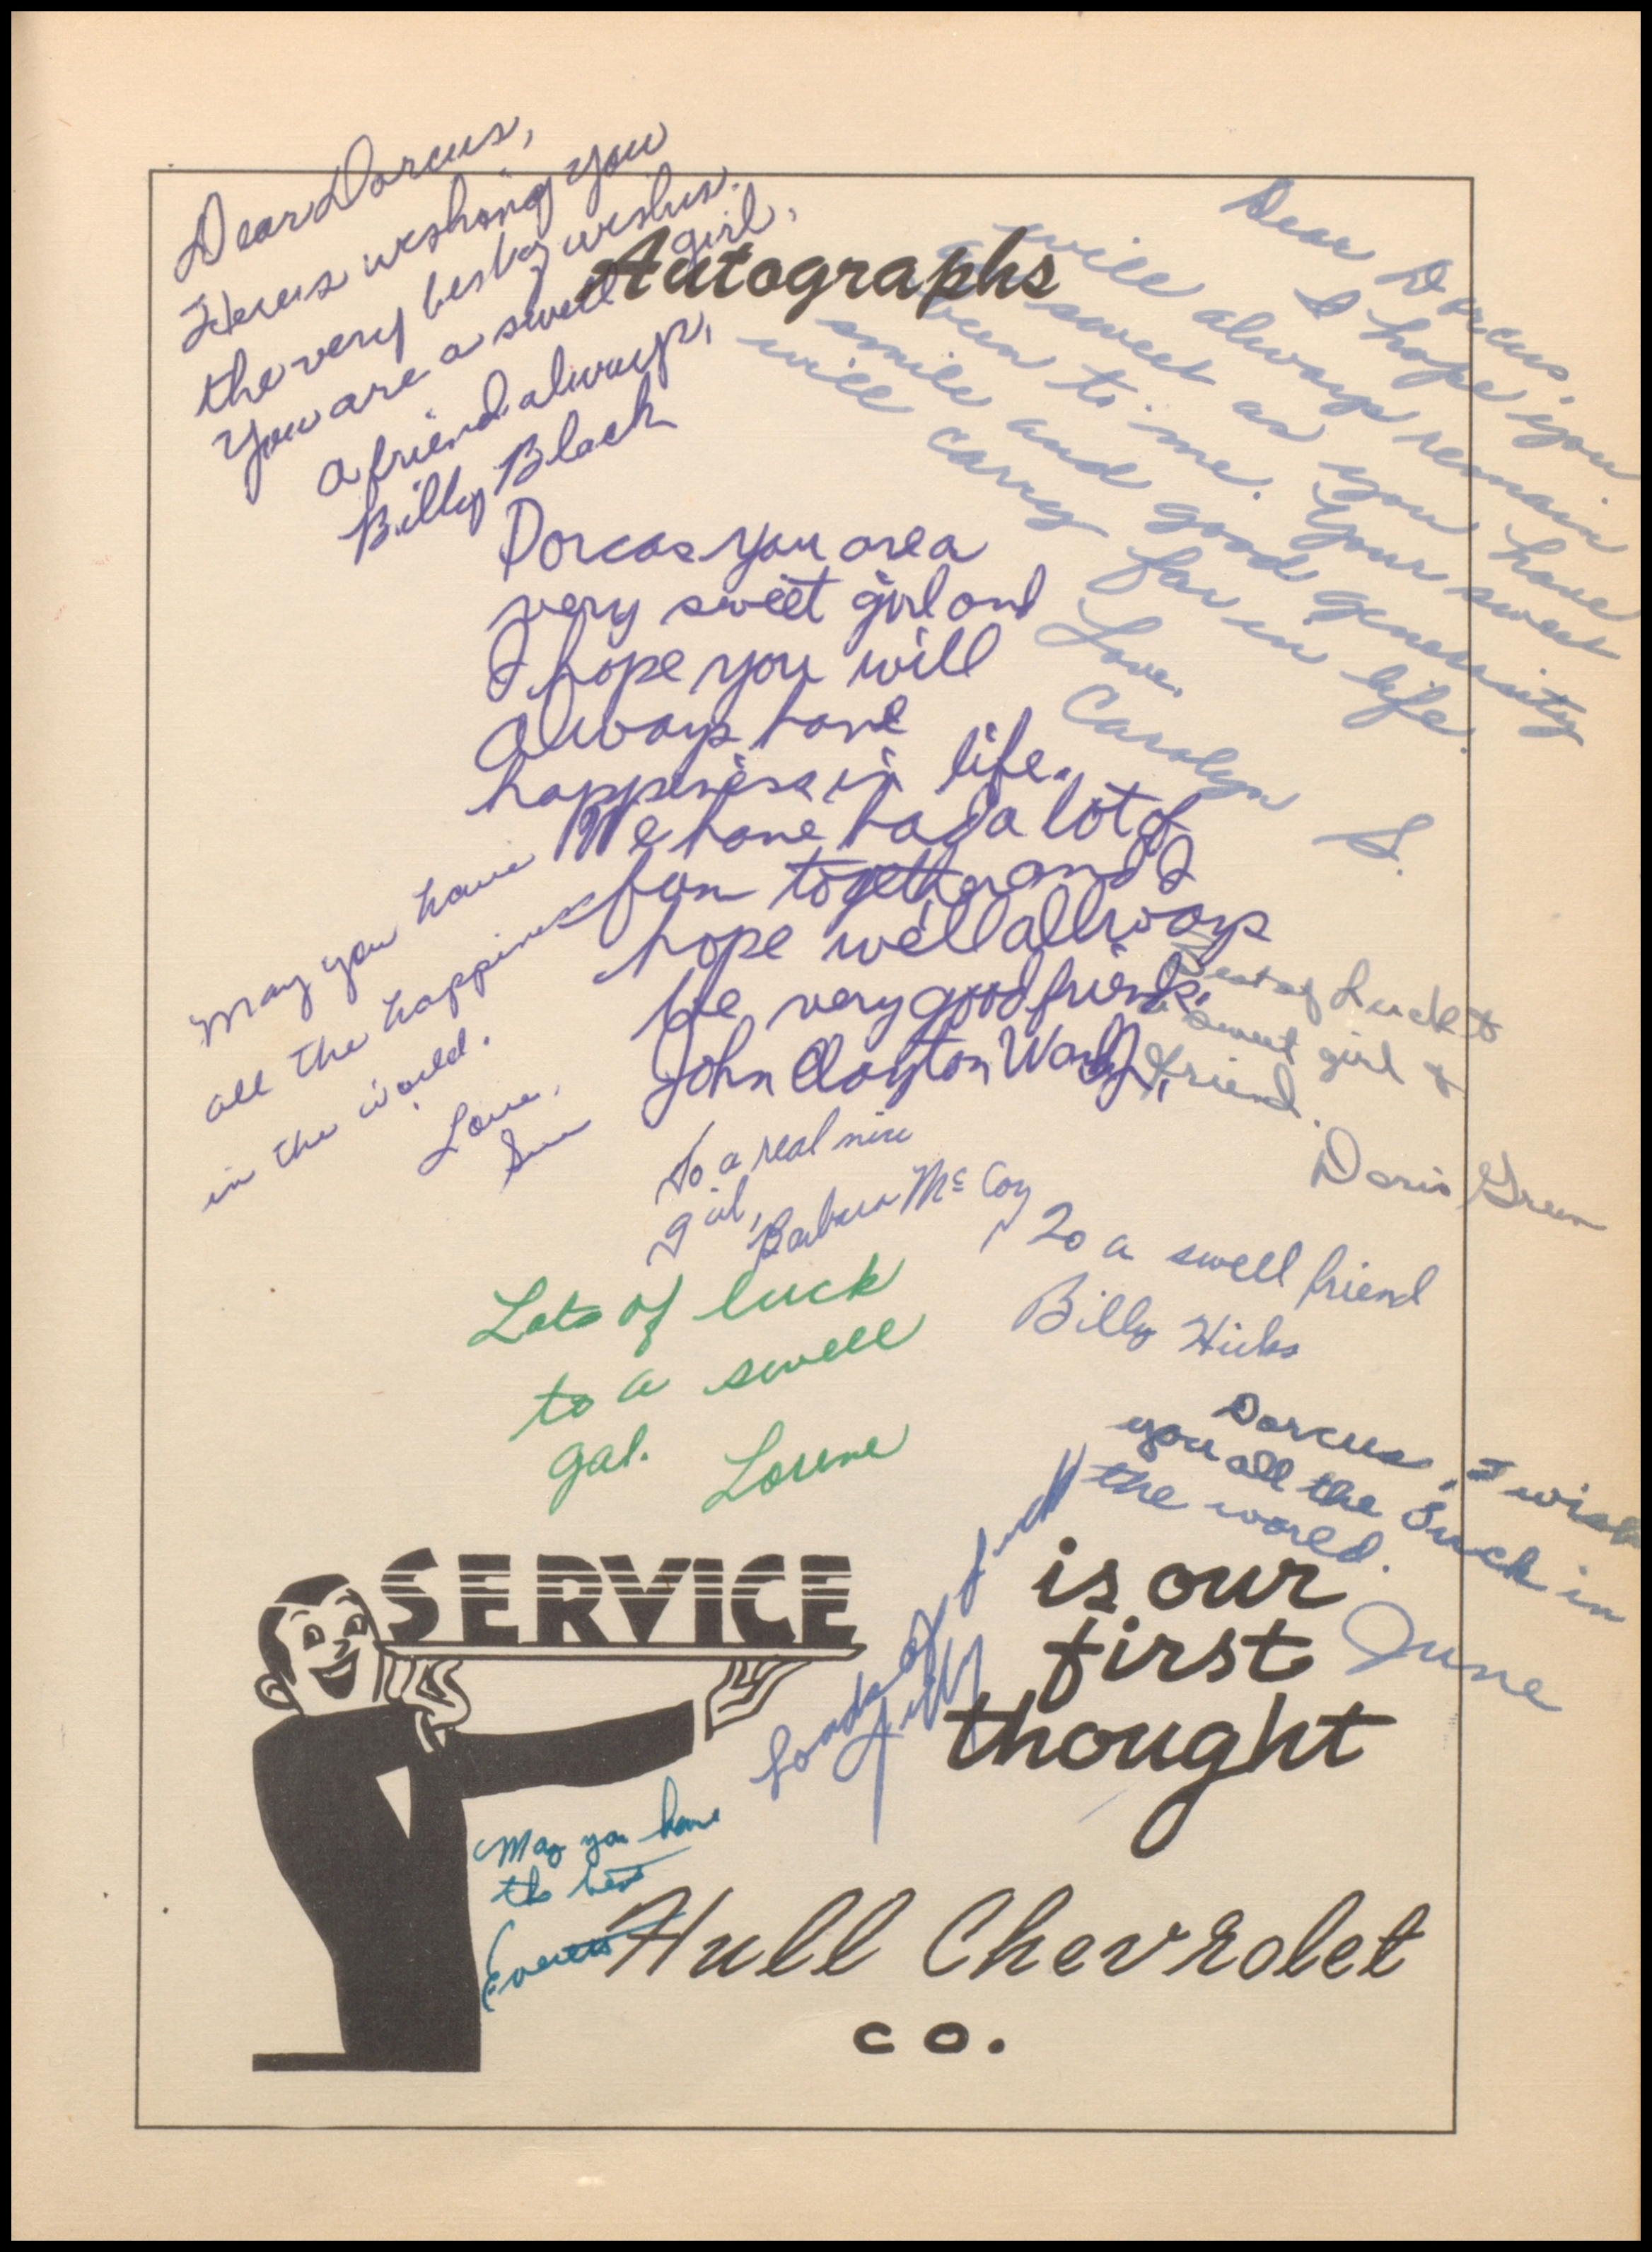 Dear Dorcus,
Heres wishing you
the very best of wishes.
You are a swell girl.
a friend always,
Billy Black
Autographs
Dear Dorcus,
I hope you
will always remain
as sweet as you have
been to me. Your sweet
smile and good generosity
will carry far in life.
Love,
Carolyn S.
Dorcas you are a
very sweet girl and
I hope you will
always have
happiness in life.
We have had a lot of
fun together and I
hope we'll allways
be very good friends.
John Clayton
May you have
all the happiness
in the world.
Love,
Sue
Best of Luck to
a sweet girl &
friend.
Doris Green
To a real nice
girl,
Barbara McCoy
To a swell friend
Billy Hicks
Lots of luck
to a swell
gal.
Lorene
Dorcus, I wish
you all the luck in
the world.
June
Loads of luck
SERVICE
is our
first
thought
May you have
the best
Everett
Hull Chevrolet
co.